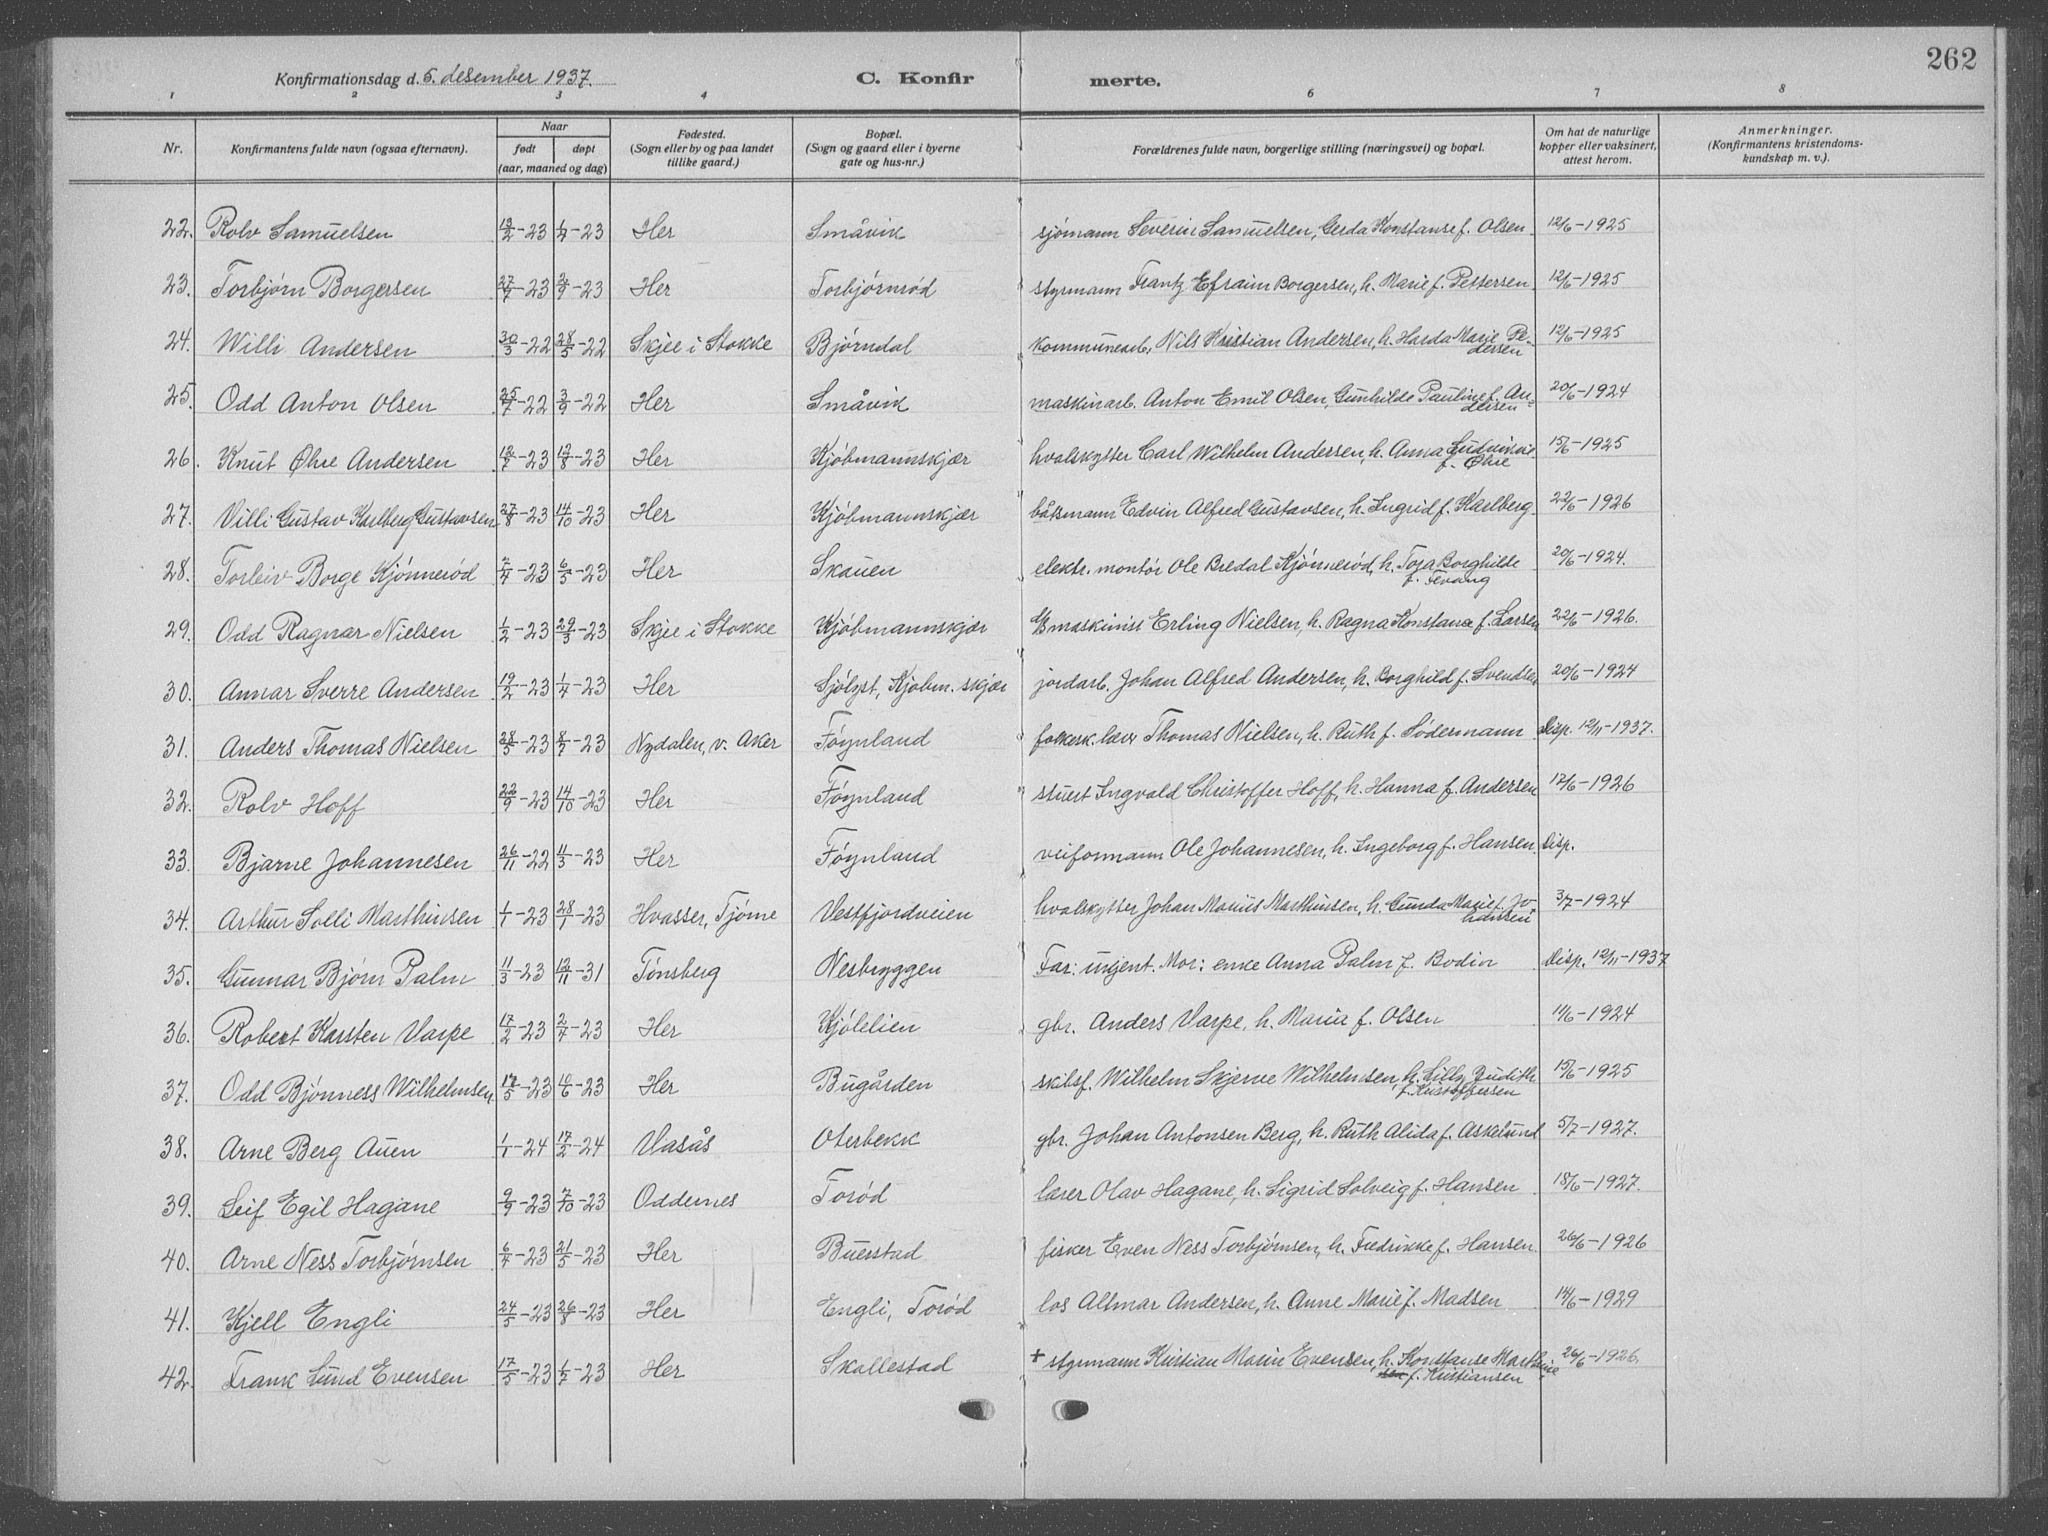 262
Konfirmationsdag d. 5. desember 1937. C. Konfirmerte.
1 2 3 4 6 7 8
Nr. Konfirmantens fulde navn (ogsaa efternavn). Naar født døpt (aar, maaned og dag) Fødested. (Sogn eller by og paa landet tillike gaard.) Bopæl. (Sogn og gaard eller i byerne gate og hus-nr.) Forældrenes fulde navn, borgerlige stilling (næringsvei) og bopæl. Om hat de naturlige kopper eller vaksinert, attest herom. Anmerkninger. (Konfirmantens kristendomskundskap m. v.).
22. Rolv Samuelsen 13/2-23 1/4-23 Her Småvik sjømann Severin Samuelsen, Gerda Konstanse f. Olsen 12/6-1925
23. Torbjørn Borgersen 27/7-23 2/9-23 Her Torbjørnrød styrmann Frantz Efraim Borgersen, h. Marie f. Pettersen 12/6-1925
24. Willi Andersen 30/3-22 28/5-22 Skjee i Stokke Bjørndal kommunearb. Nils Kristian Andersen, h. Harda Marie Pedersen 12/6-1925
25. Odd Anton Olsen 25/7-22 3/9-22 Her Småvik maskinarb. Anton Emil Olsen, Gunhilde Pauline f. Andersen 20/6-1924
26. Knut Øhre Andersen 12/7-23 12/8-23 Her Kjøbmannskjær hvalskytter Carl Wilhelm Andersen, h. Anna f. Øhre 15/6-1925
27. Villi Gustav Karlberg Gustavsen 27/8-23 14/10-23 Her Kjøbmannskjær båtsmann Edvin Alfred Gustavsen, h. Ingrid f. Karlberg 22/6-1926
28. Torleiv Borge Kjønnerød 7/4-23 6/5-23 Her Skauen elektr. montør Ole Bredal Kjønnerød, h. Tora Borghilde f. Fevang 20/6-1924.
29. Odd Ragnar Nielsen 1/2-23 29/3-23 Skjee i Stokke Kjøbmannskjær maskinist Erling Nielsen, h. Ragna Konstanse f. Larsen 22/6-1926.
30. Annar Sverre Andersen 19/2-23 1/4-23 Her Sjølyst, Kjøbm. skjær jordarb. Johan Alfred Andersen, h. Borghild f. Svendsen 20/6-1924
31. Anders Thomas Nielsen 28/5-23 8/7-23 Nydalen, v. Aker Føynland folkesk. lærer Thomas Nielsen, h. Ruth f. Södermann Disp. 12/11-1937.
32. Rolv Hoff 22/9-23 14/10-23 Her Føynland stuert Ingvald Christoffer Hoff, h. Hanna f. Andersen 17/6-1926
33. Bjarne Johannesen 26/11-22 11/3-23 Her Føynland veiformann Ole Johannesen, h. Ingeborg f. Hansen. Disp.
34. Arthur Solli Marthinsen 1/1-23 28/1-23 Hvasser, Tjøme Vestfjordveien hvalskytter Johan Marius Marthinsen, h. Gunda Marie f. Johansen 3/7-1924
35. Gunnar Bjørn Palm 11/3-23 12/11-31 Tønsberg Nesbryggen Far: ungent. Mor: enke Anna Palm f. Bodin Disp. 12/11-1937
36. Robert Karsten Varpe 17/2-23 2/4-23 Her Kjølelien gbr. Anders Varpe, h. Maria f. Olsen 11/6-1924
37. Odd Bjønness Wilhelmsen, 17/5-23 10/6-23 Her Bugården skibsf. Wilhelm Skjerve Wilhelmsen, h. Lilly Judith f. Kristoffersen 15/6-1925
38. Arne Berg Auen 1/1-24 17/2-24 Vasås Oterbekk gbr. Johan Antonsen Berg, h. Ruth Alida f. Askelund 5/7-1927.
39. Leif Egil Hagane 9/9-23 7/10-23 Oddernes Torød lærer Olav Hagane, h. Sigrid Solveig f. Hansen 18/6-1927.
40. Arne Ness Torbjørnsen 6/4-23 21/5-23 Her Buerstad fisker Even Ness Torbjørnsen, h. Fredrikke f. Hansen. 26/6-1926
41. Kjell Engli 24/5-23 26/8-23 Her Engli, Torød los Allmar Andersen, h. Anne Marie f. Madsen 14/6-1929
42. Frank Lund Evensen 17/5-23 1/7-23 Her Skallestad + styrmann Kristian Marin Evensen, h. Konstanse Marthine f. Kristiansen 26/6-1926.